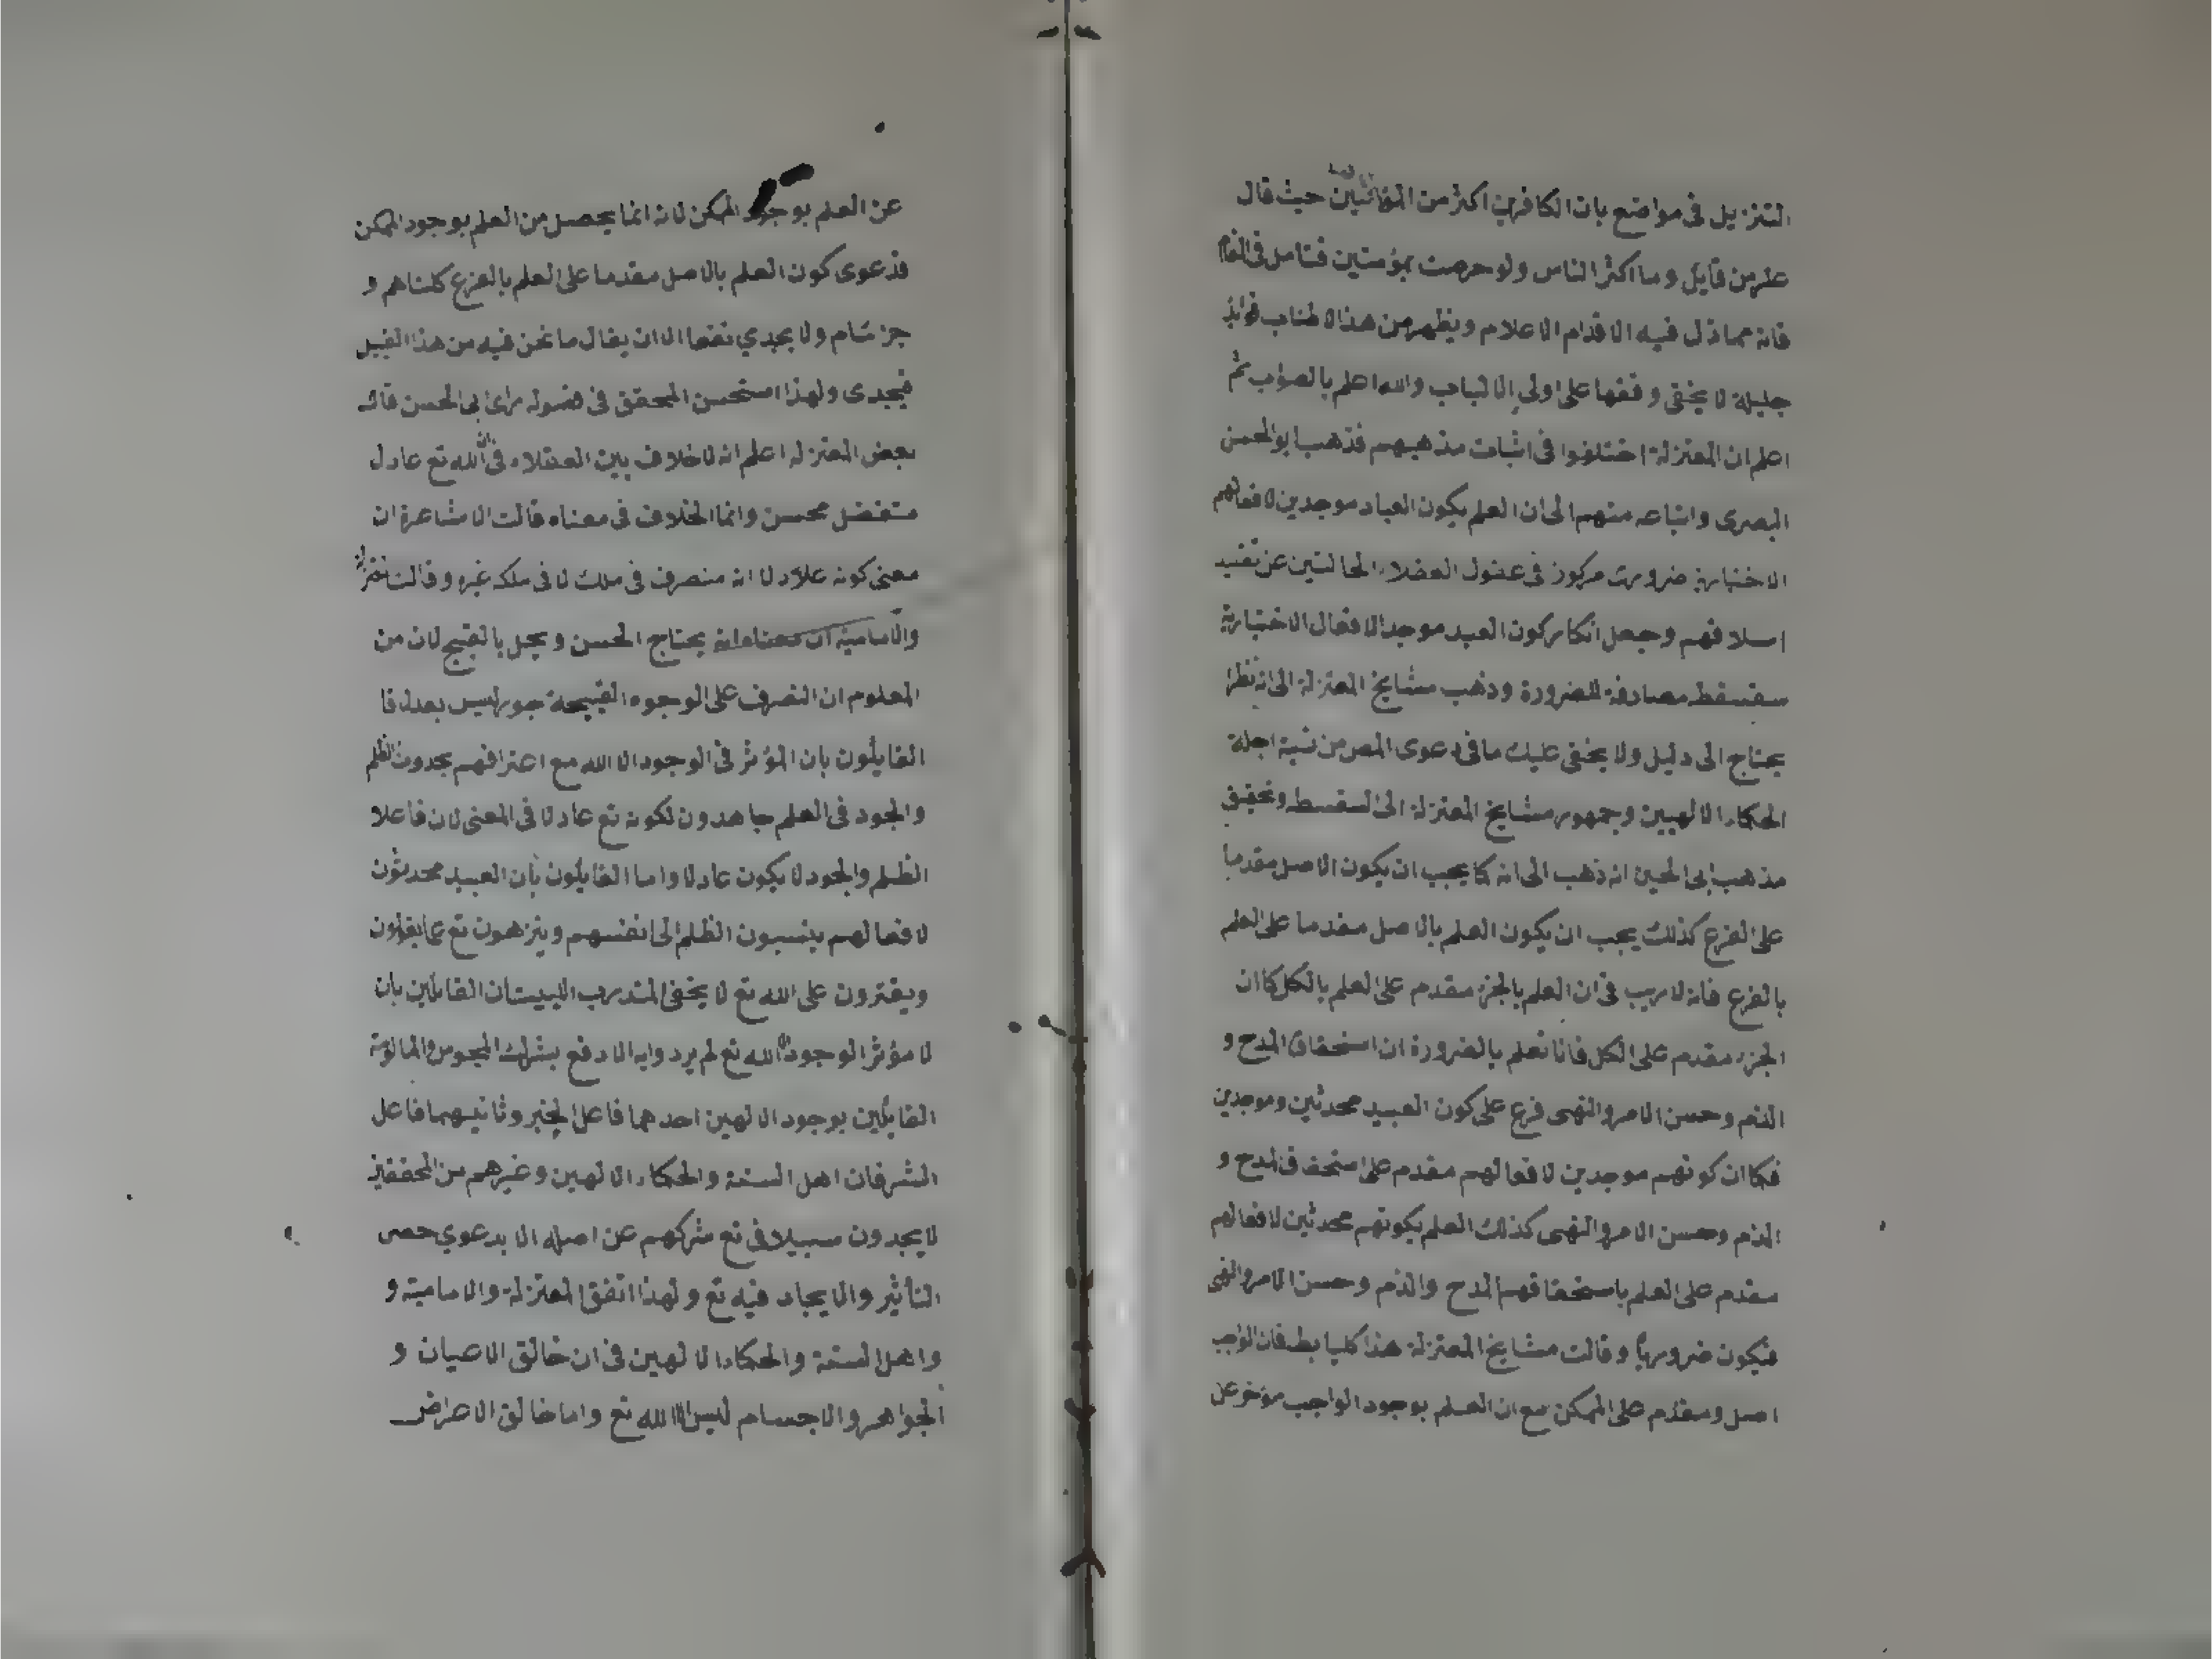 التنزيل في مواضع بان الكافرين اكثر من حيث قال
عز من قايل وما اكثر الناس ولو حرصت بمؤمنين فتامل في المقام
فانه مما ذل فيه الاقدام الاعلام ويظهر من هذا الاطناب فوائد
جليلة لا يخفى وقعها على اولي الالباب والله اعلم بالصواب ثم
اعلم ان المعتزلة اختلفوا في اثبات مذهبهم فذهب ابو الحسن
البصرى واتباعه منهم الى ان العلم بكون العباد موجدين لافعالهم
الاختيارية ضرورى مركوز في عقول العقلاء الخالتين عن تقنيد
اسلافهم وجعل انكار كون العبد موجد الافعال الاختيارية
سفسقطه مصادفة للضرورة وذهب مشايخ المعتزلة الى انه نظرا
يحتاج الى دليل ولا يخفى عليك ما في دعوى المص من نسبة اجلة
الحكماء الالهيين وجمهور مشايخ المعتزلة الى السفسطه وتحقيق
مذهب ابى الحسين انه ذهب الى انه كما يجب ان يكون الاصل مقدما
على الفرع كذلك يجب ان يكون العلم بالاصل مقدما على العلم
بالفرع فانه لا ريب في ان العلم بالجزء مقدم على العلم بالكل كما ان
الجزء مقدم على الكل فانا نعلم بالضرورة ان استحقاق المدح و
الذم وحسن الامر والنهى فرع على كون العبيد محدثين وموجدين
فكما ان كونهم موجدين لافعالهم مقدم على استحقاق المدح و
الذم وحسن الامر والنهى كذلك العلم بكونهم محدثين لافعالهم
مقدم على العلم باستحقاقهم المدح والذم وحسن الامر والنهى
فيكون ضروريا وقالت مشايخ المعتزلة هذا كليا بط فان الواجب
اصل ومقدم على الممكن مع ان العلم بوجود الواجب مؤخر عن
عن العلم بوجود الممكن لانه انما يحصل من العلم بوجود الممكن
فدعوى كون العلم بالاصل مقدما على العلم بالفرع كلتاهم و
جز شام ولا يجدي نفعا الا ان يقال ما نحن فيه من هذا القبيل
فيجدى ولهذا استحسن المحقق في فصوله راى ابى الحسن قال
بعض المعتزلة اعلم انه لا خلاف بين العقلاء في ان الله تع عادل
متفضل محسن وانما الخلاف في معناه قالت الاشاعرة ان
معنى كونه عادلا انه متصرف في ملك لا في ملك غيره وقالت
والامامية ان معناه انه يحتاج الحسن ويحل بالقبيح لان من
المعلوم ان التصرف على الوجوه القبيحة جور ليس بعدل فا
القايلون بان المؤثر في الوجود الا الله مع اعترافهم بحدوث الظلم
والجود في العلم جاهدون لكونه تع عادلا في المعنى لان فاعلا
الظلم والجود لا يكون عادلا واما القايلون بان العبيد محدثون
لافعالهم ينسبون الظلم الى انفسهم وينزهون تع عما يقولون
ويفترون على الله تع لا يخفى المتدرب اللبيب ان القايلين بان
لا مؤثر الوجود الا الله تع لم يردوا به الا دفع بشرك المجوس والمالوية
القايلين بوجود الالهين احدهما فاعل الخير وثانيهما فاعل
الشر فان اهل السنة والحكماء الالهين وغيرهم من المحققين
لا يجدون سبيلا في تع شركهم عن اصله الا بدعوي حصر
التأثير والايجاد فيه تع ولهذا اتفق المعتزلة والامامية و
واهل السنة والحكماء الالهين في ان خالق الاعيان و
الجواهر والاجسام ليس الا الله تع واما خالق الاعراض